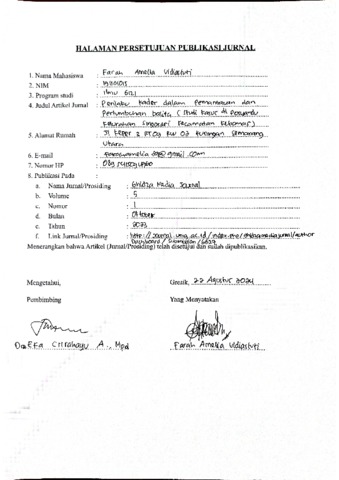 HALAMAN PERSETUJUAN PUBLIKASI JURNAL
1. Nama Mahasiswa : Farah Amelia Vidiastuti
2. NIM :
3. Program studi : Ilmu Gizi
4. Judul Artikel Jurnal : Perilaku kader dalam pemantauan dan
Pertumbuhan balita (Studi kasus di Posyandu
Kelurahan Kecamatan Kebomas)
5. Alamat Rumah : Jl RW 03 Semarang
Utara
6. E-mail : @gmail.com
7. Nomor HP :
8. Publikasi Pada :
a. Nama Jurnal/Prosiding : Ghidza Media Journal
b. Volume : 5
c. Nomor : 1
d. Bulan : Oktober
e. Tahun : 2023
f. Link Jurnal/Prosiding : http://journal.umg.ac.id/index.php/ghidzamediajurnal/author
Dashboard/submission/
Menerangkan bahwa Artikel (Jurnal/Prosiding) telah disetujui dan sudah dipublikasikan.
Mengetahui, Gresik, 22 Agustus 2024
Pembimbing Yang Menyatakan
Citrahayu A., Mpd Farah Amelia Vidiastuti